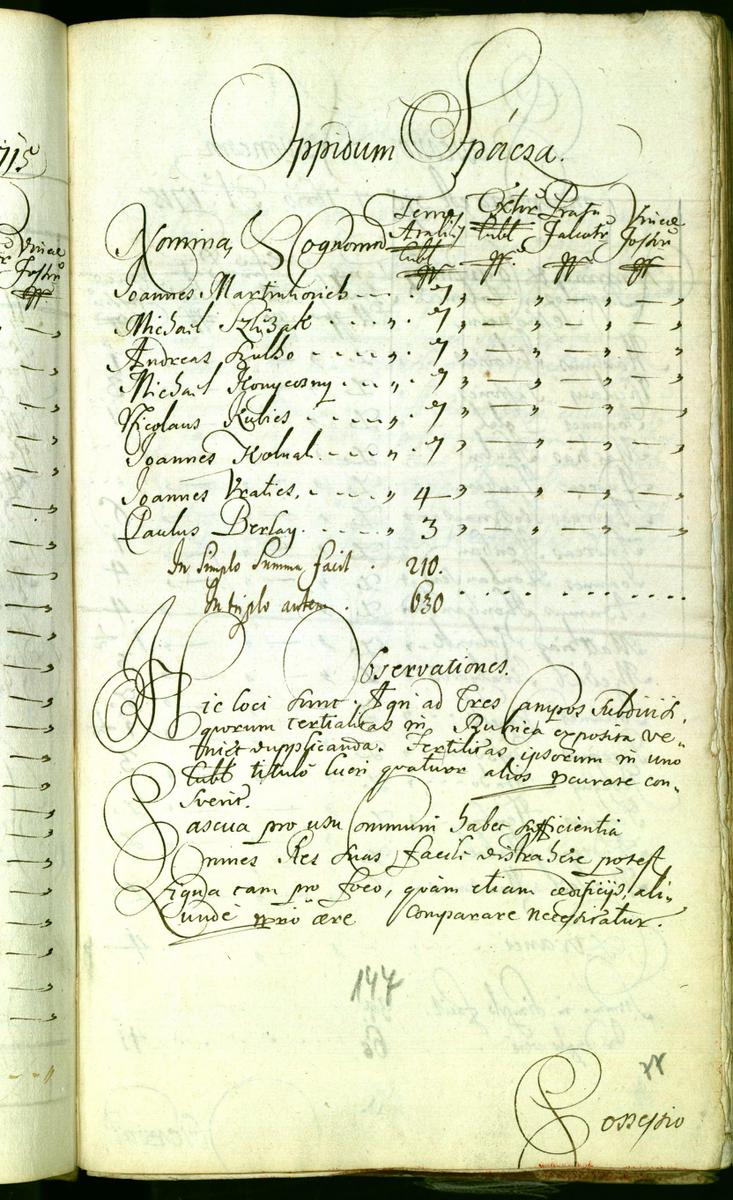 715
Oppidum Spácsa.
Nomina, & Cognomina Terra Arabilis Cubl Extir Cubl Prata Falcatr Vineae Fossrū
Joannes Martinkovich - - - „ 7 „ — „ — „ — „
Michael - - - „ 7 „ — „ — „ — „
Andreas Kulho - - - - „ 7 „ — „ — „ — „
Michael Konyeczny - - „ 7 „ — „ — „ — „
Nicolaus Kubics - - - „ 7 „ — „ — „ — „
Joannes - - - „ 7 „ — „ — „ — „
Joannes Vratics. - - „ 4 „ — „ — „ — „
Paulus Berlay. - - - - „ 3 „ — „ — „ — „
In Simplo Summa facit . 210.
In triplo autem . 630
Observationes.
Hic loci sunt Agri ad Tres Campos subdivisi,
quorum tertialitas in Rubrica exposita ve-
niet dupplicanda. Fertilitas ipsorum in uno
Cubl titulo lucri quatuor alios pcurare con-
sverit.
Pascua pro usu Communi habet sufficientia
Omnes Res suas facile distrahere potest
Ligna tam pro foco, quàm etiam aedificijs, ali-
unde pro aere Comparare necessitatur.
147
Possessio